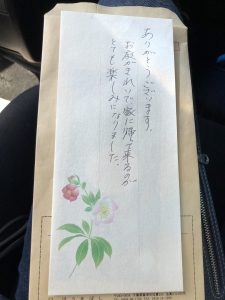 ありがとうございます。
お庭がきれいで家に帰って来るのが
とても楽しみになりました。